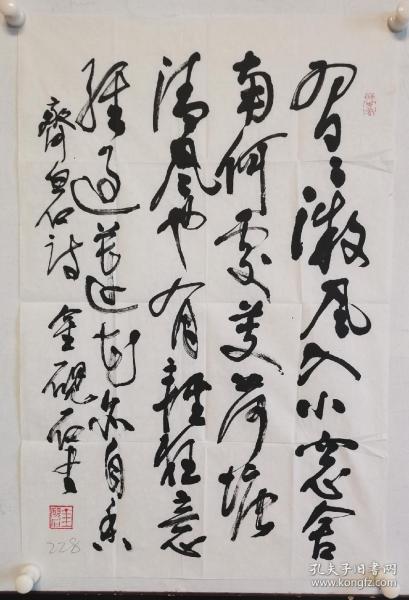 習々微風入小窗舍
南何處芰荷塘
清風也有輕狂意
經過蓮花亦自香
齊白石詩 金硯石書
228
孔夫子旧书网
www.kongfz.com